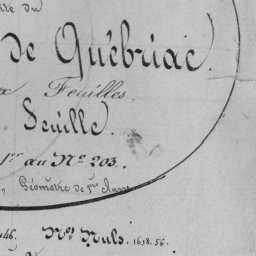 du
de Québriac.
Feuilles.
Feuille.
1er au No 203.
Géomètre de 1ère classe
46. Nos Nuls. 1618. 56.